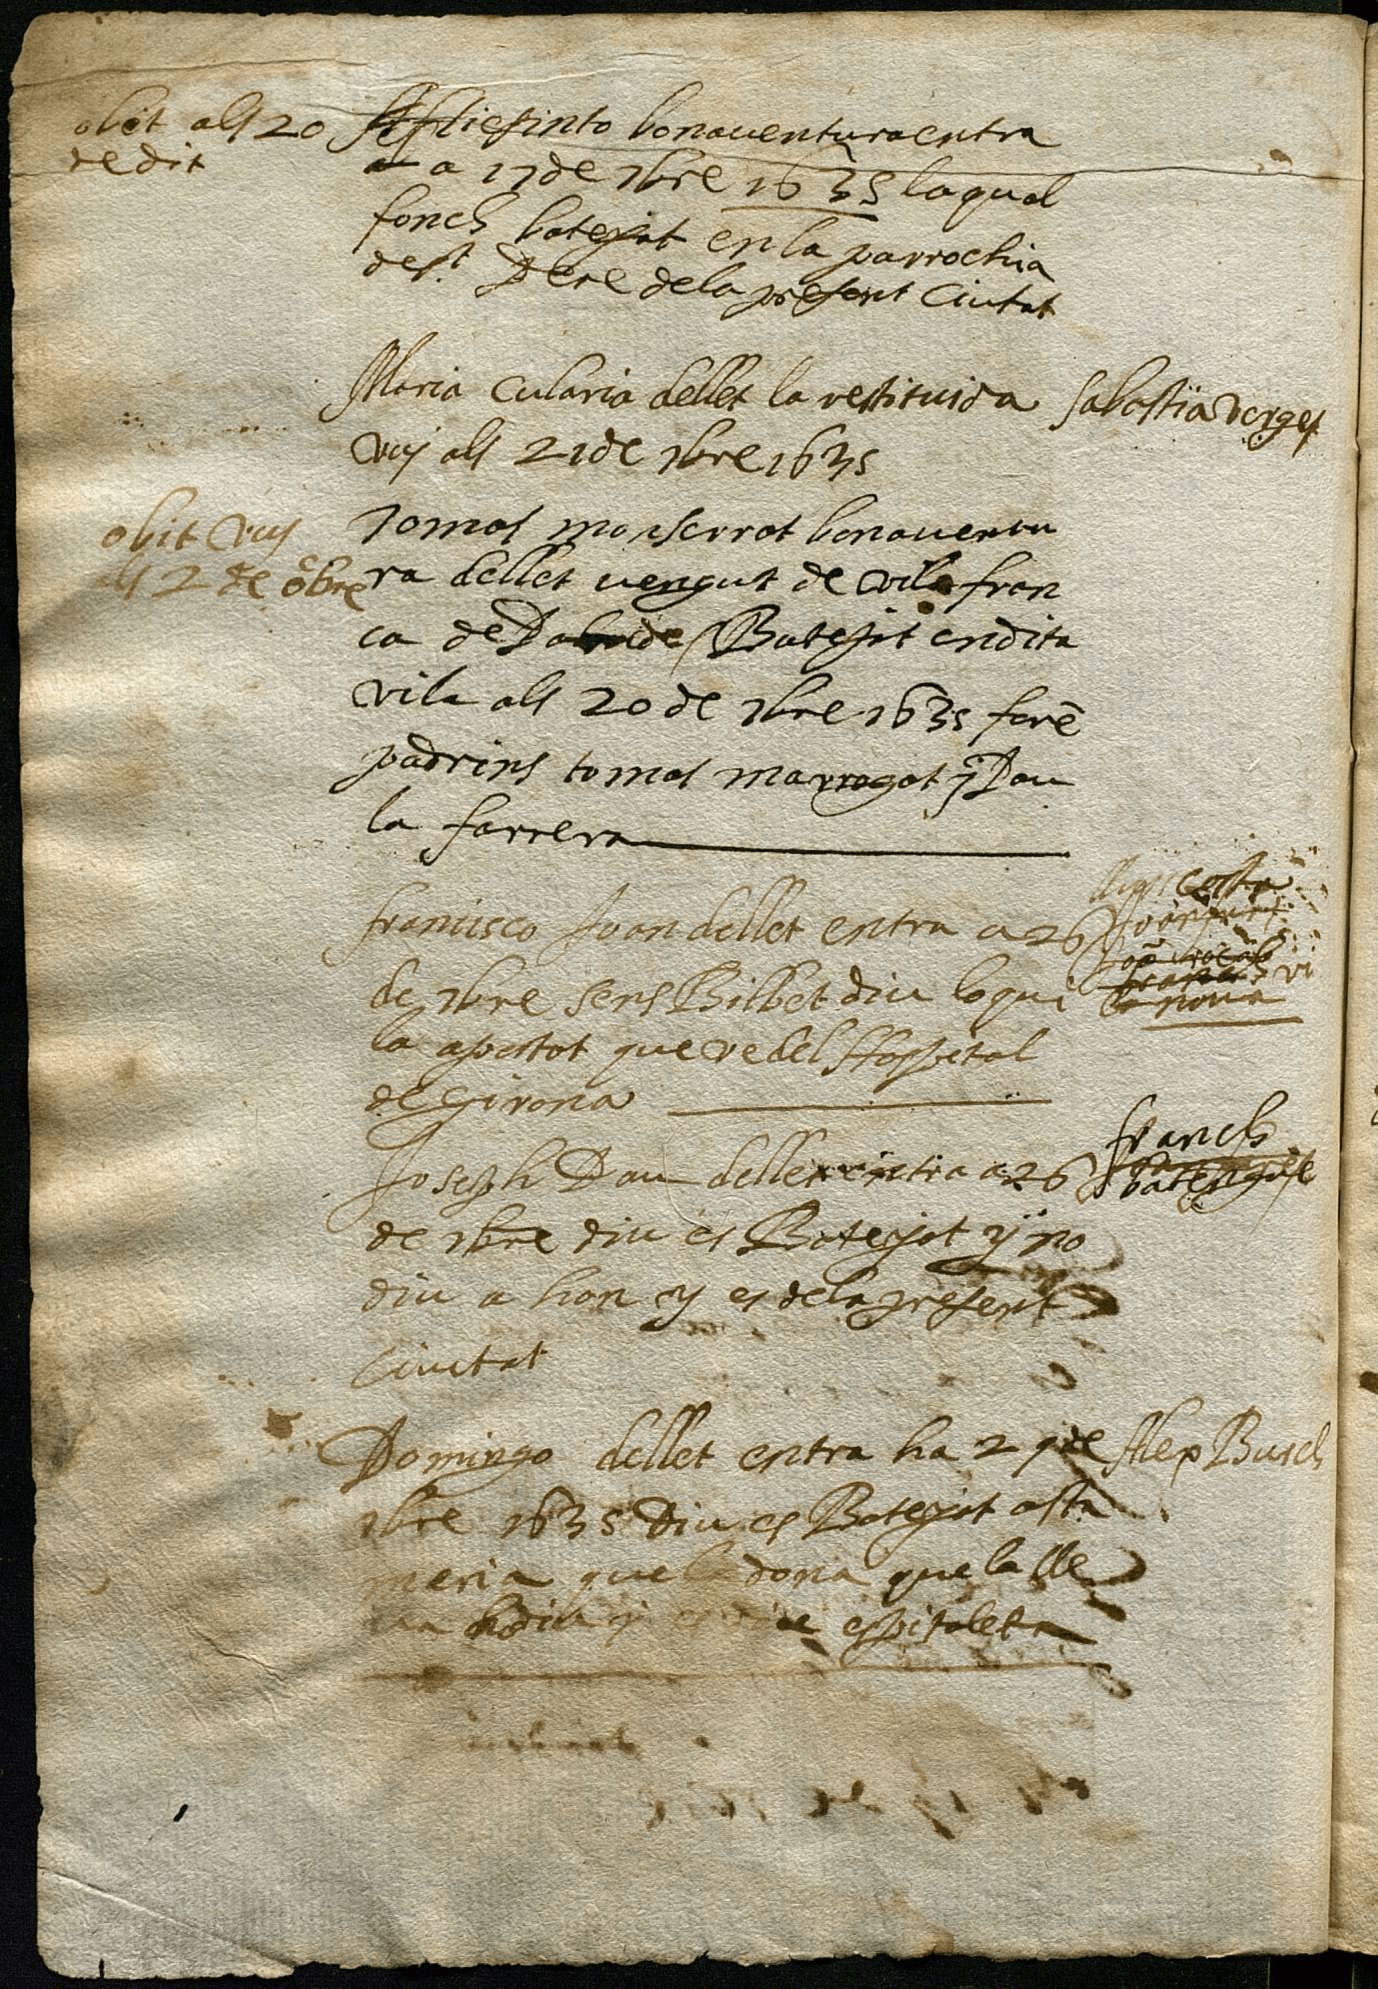 obit als 20
de dit
Jesintо bonaventura entra
a 17 de 7bre 1635 la qual
fonch batejat en la parrochia
de st. Pere de la present Ciutat
Maria Cularia dellet la restituida
vuy als 21 de 7bre 1635
Sabastia verges
obit vuy
als 2 de 8bre
Tomas monserrat bonaventu
ra dellet vengut de vila fran
ca de Batejat en dita
vila als 20 de 7bre 1635 forē
padrins tomas marragat y Pau
la farrera
francisco Juan dellet entra a 26
de 7bre sens Billet diu lo qui
la aportat que ve del Hospital
de Girona
costa
vi
la nova
Joseph Pau dellet entra a 26
de 7bre diu es Batejat y no
diu a hon y es de la present
Ciutat
franch
Domingo dellet entra ha 29 de
7bre 1635 Diu es Batejat
que la dona que la lle
va ho diu y espitaleta
Alex Busch